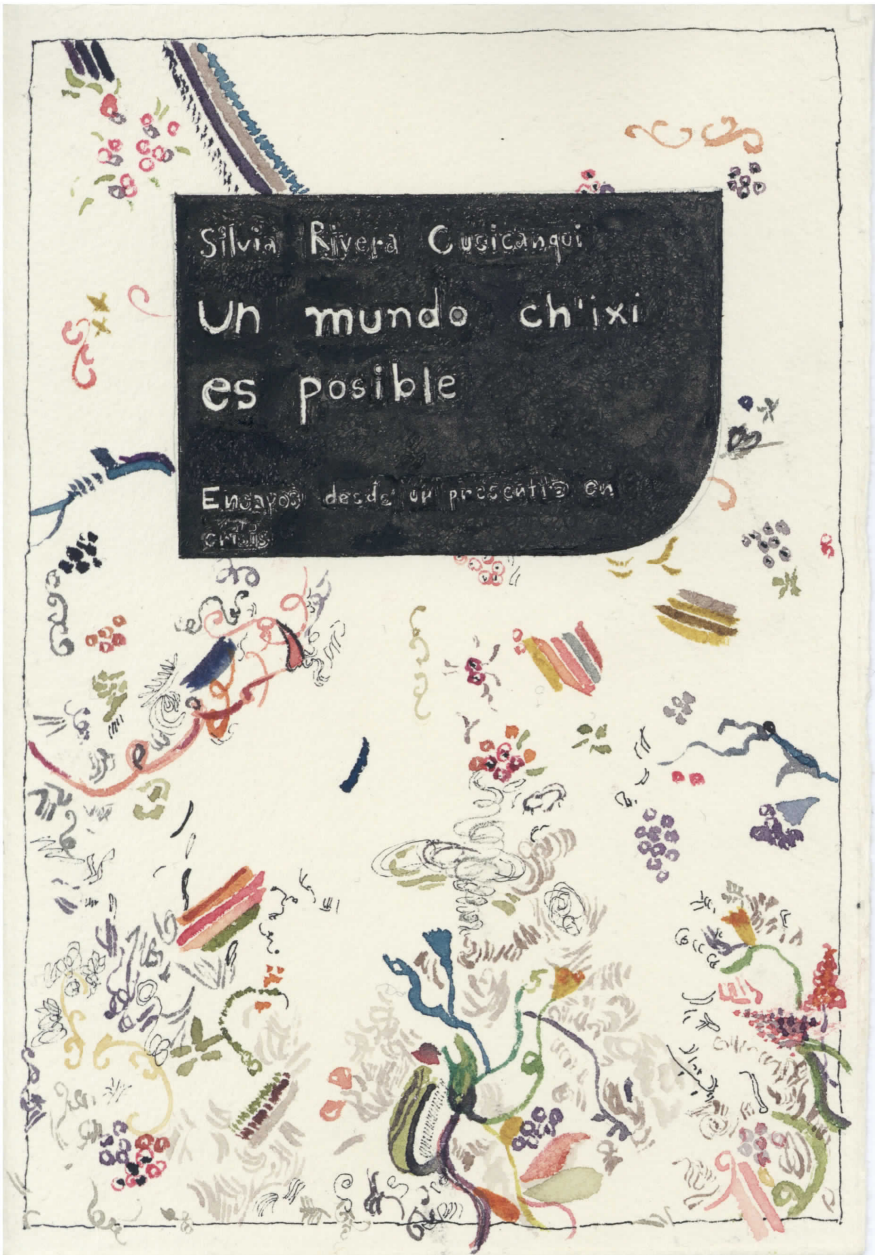 Silvia Rivera Cusicanqui
un mundo ch'ixi
es posible
Ensayos desde un presente en
crisis